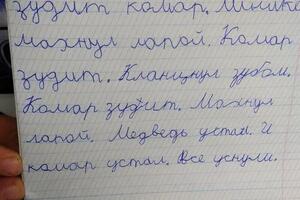 зудит комар. Мишка
махнул лапой. Комар
зудит. Клацнул зубом.
Комар зудит. Махнул
лапой. Медведь устал. И
комар устал. Все уснули.